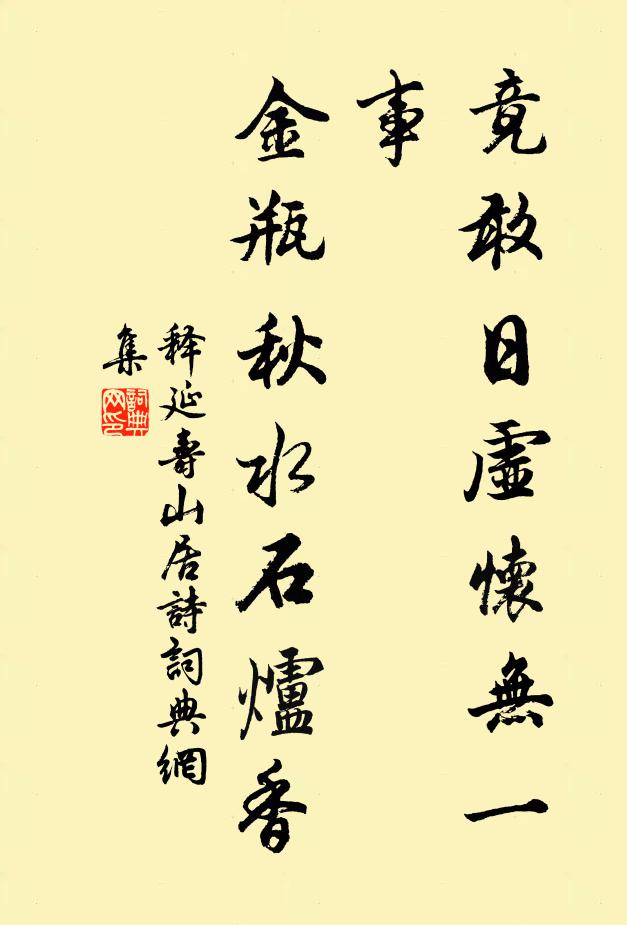 竟敢日虛懷無一
事
金瓶秋水石爐香
释延壽山居詩詞典網
集
詞典网印